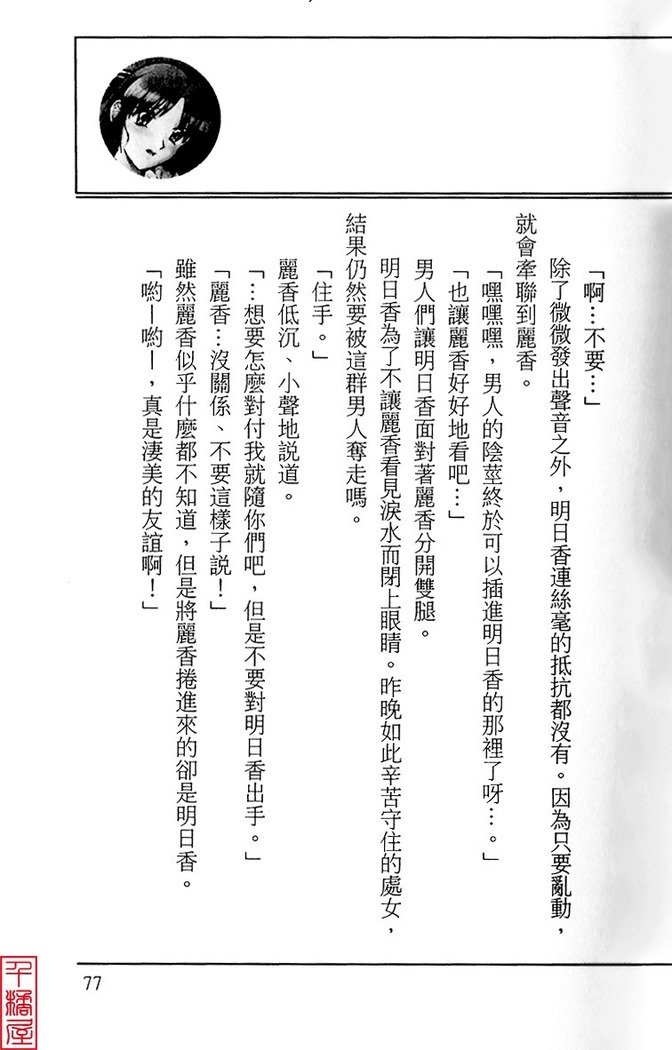 「啊…不要…」
除了微微發出聲音之外，明日香連絲毫的抵抗都沒有。因為只要亂動，
就會牽聯到麗香。
「嘿嘿嘿，男人的陰莖終於可以插進明日香的那裡了呀…。」
「也讓麗香好好地看吧…」
男人們讓明日香面對著麗香分開雙腿。
明日香為了不讓麗香看見淚水而閉上眼睛。昨晚如此辛苦守住的處女，
結果仍然要被這群男人奪走嗎。
「住手。」
麗香低沉、小聲地說道。
「…想要怎麼對付我就隨你們吧，但是不要對明日香出手。」
「麗香…沒關係、不要這樣子說！」
雖然麗香似乎什麼都不知道，但是將麗香捲進來的卻是明日香。
「喲ー喲ー，真是淒美的友誼啊！」
77
千橘屋